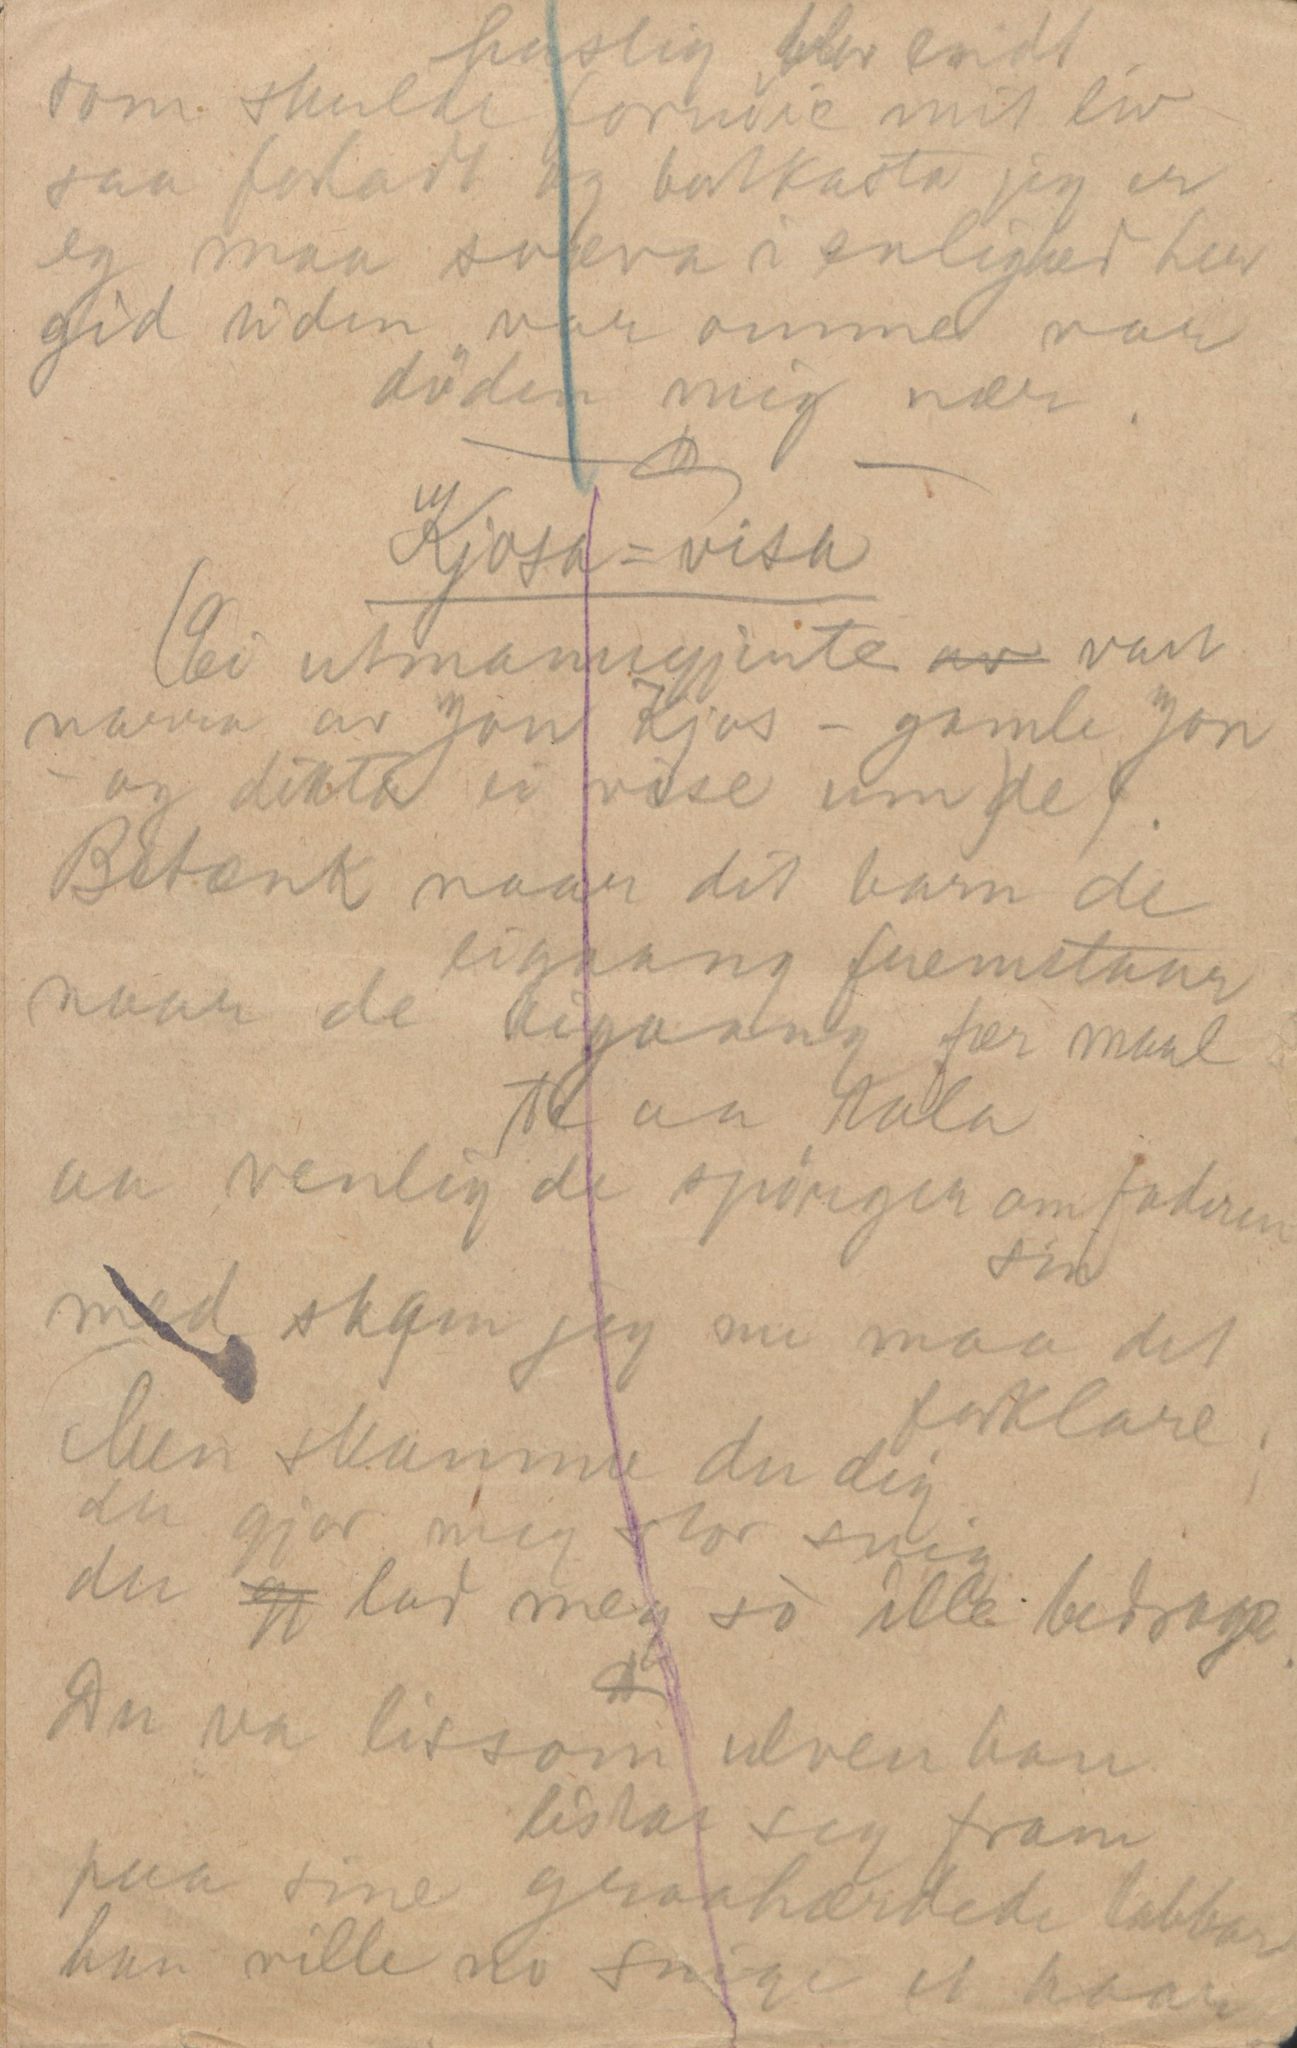 hastig blev endt
som skulde fornøie mit liv
saa forhadt og bortkasta jeg er
eg maa sveva i enlighed her
gid tiden var omme var
døden mig nær.
Kjosa=visa
(Ei utmannugjente av vart
narra av Jon Kjos – gamle Jon
– og dikta ei vise um de).
Betænk naar dit barn de
eigaang fremstaar
naar de eigaang fær maal
te aa tala
aa venlig de spørger om faderen
sin
med skam jeg nu maa det
forklare.
Men skamme du dig
du gjør meg stor svig
du lod meg så ille bedrage.
Du va lissom ulven han
listar seg fram
paa sine graahærdede labbar
han ville no snige et haar